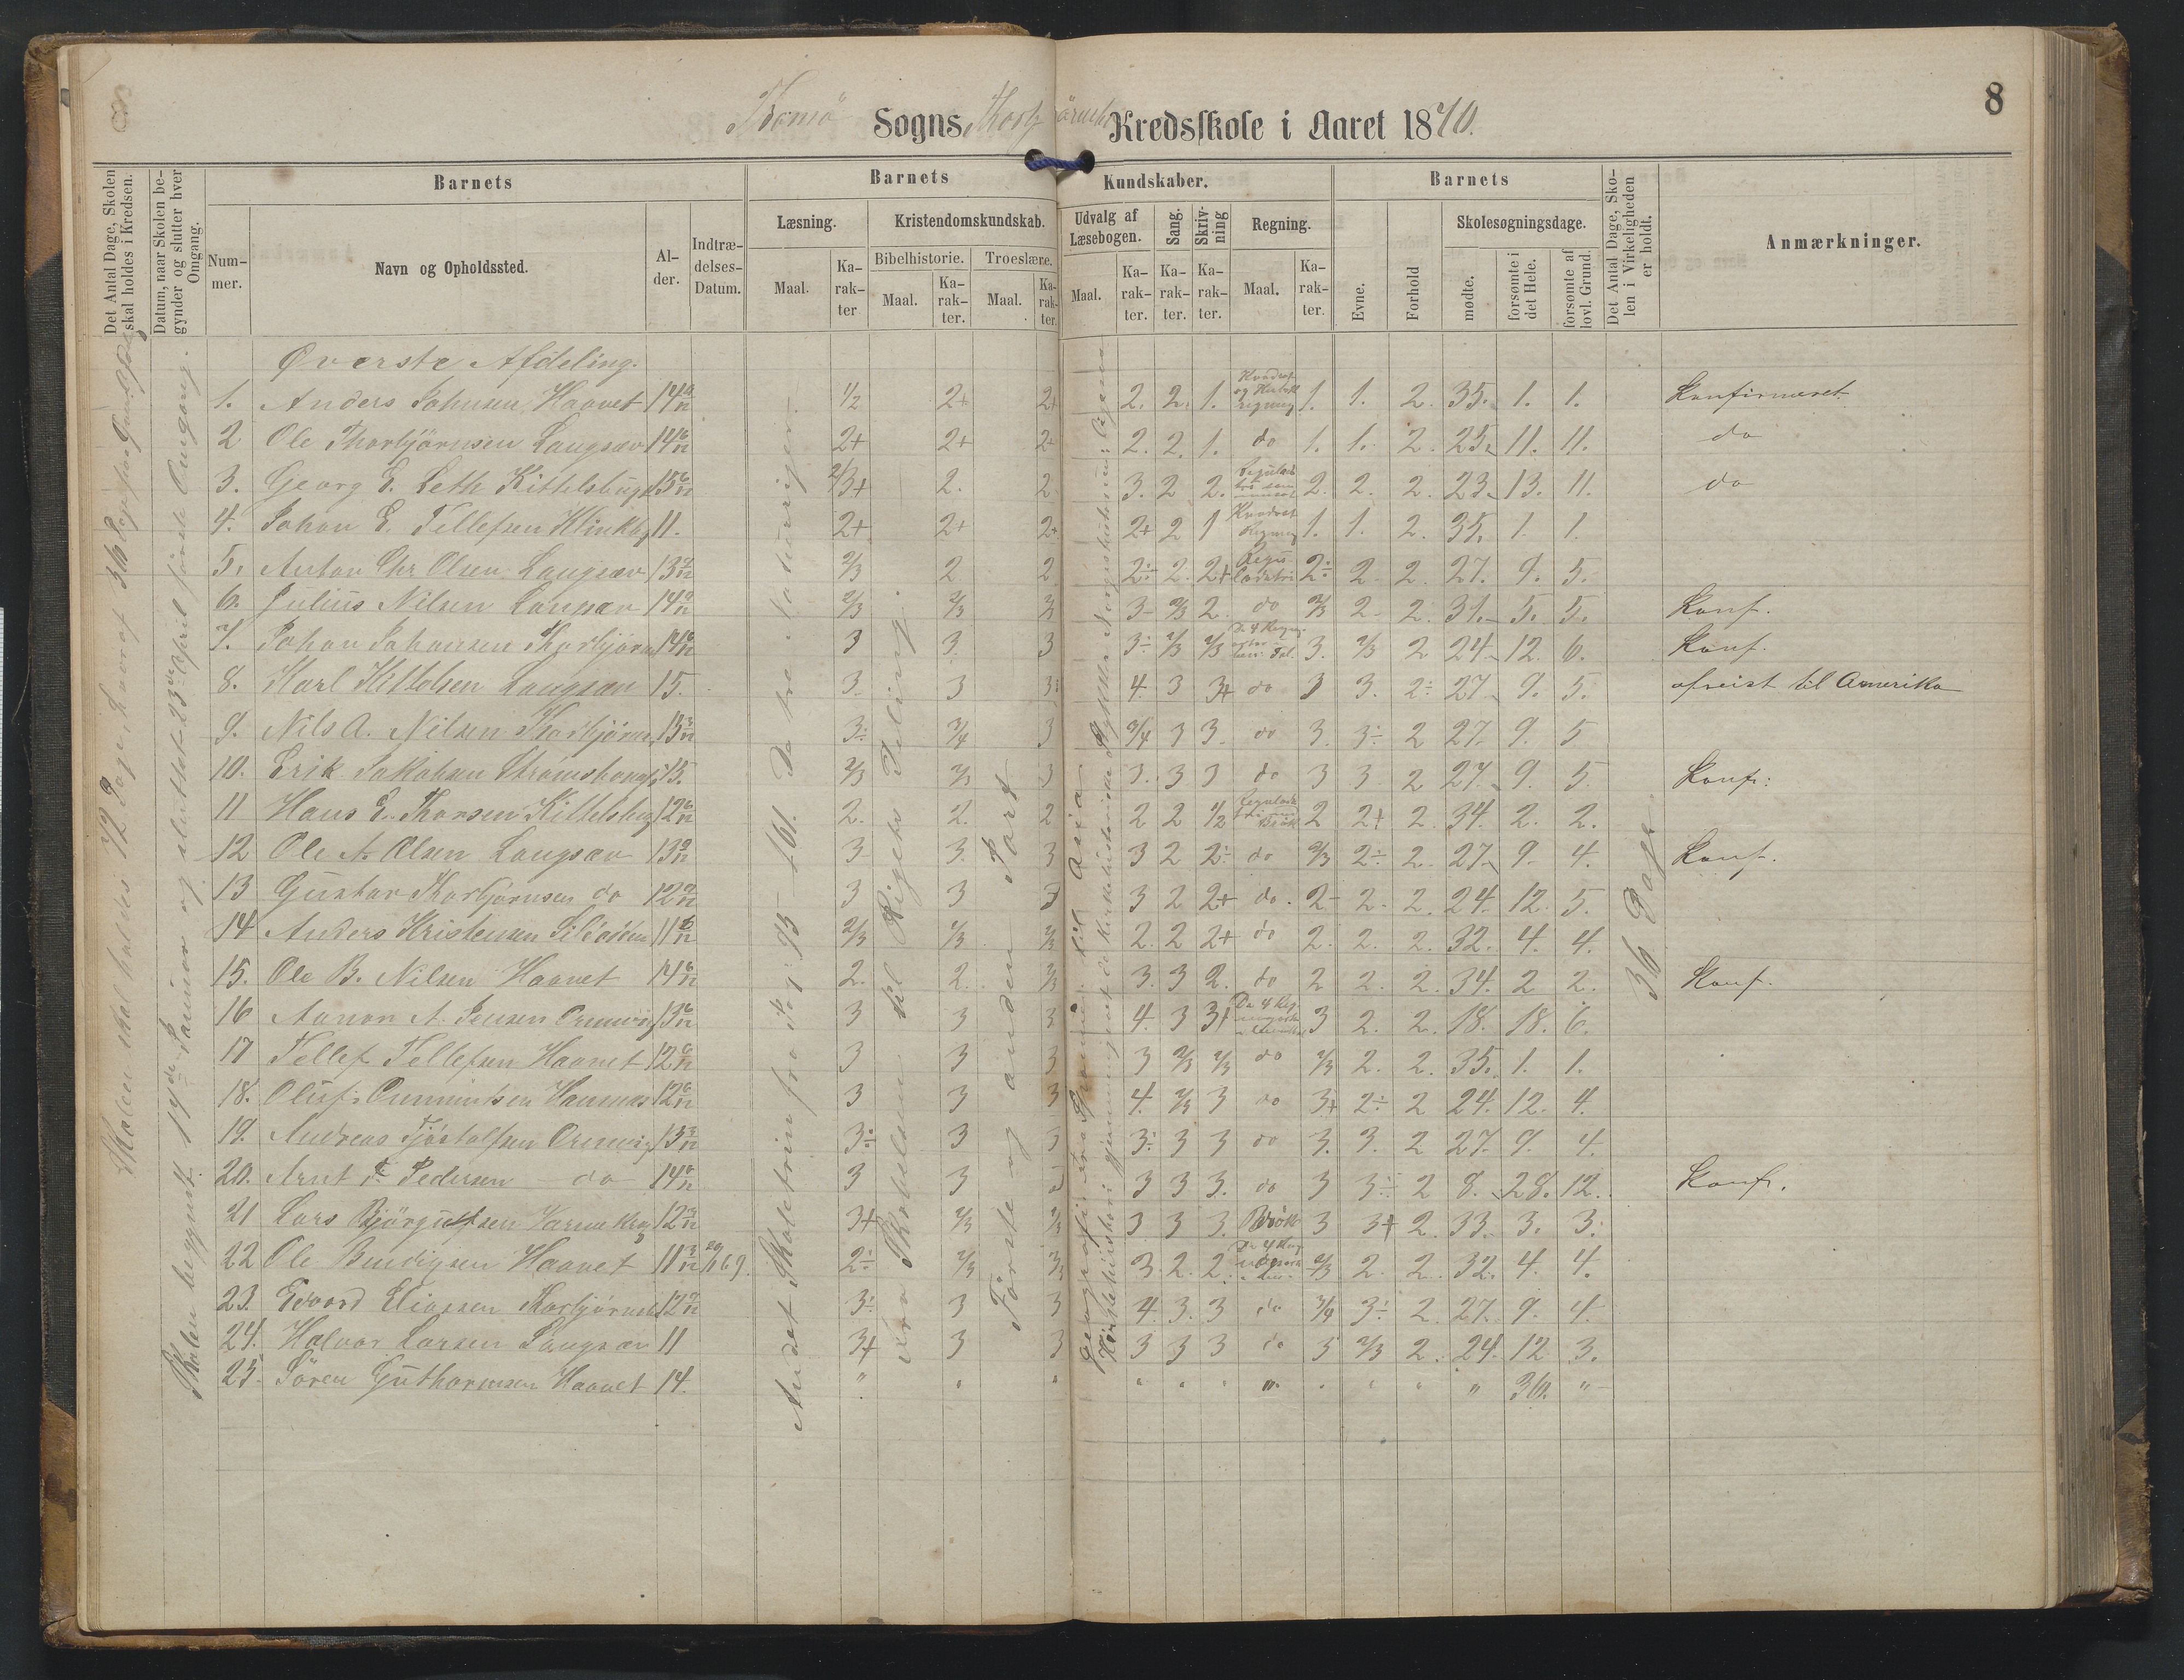 8
Tromö Sogns Thorbjörnsbu Kredsskole i Aaret 1870.
8
Det Antal Dage, Skolen skal holdes i Kredsen.
Datum, naar Skolen begynder og slutter hver Omgang.
Barnets
Nummer.
Navn og Opholdssted.
Alder.
Indtrædelses-Datum.
Barnets Kundskaber.
Læsning.
Maal.
Karakter
Kristendomskundskab.
Bibelhistorie.
Maal.
Karakter.
Troeslære.
Maal.
Karakter.
Udvalg af Læsebogen.
Maal.
Karakter.
Sang.
Karakter.
Skrivning
Karakter.
Regning.
Maal.
Karakter.
Barnets
Evne.
Forhold
Skolesøgningsdage.
mødte.
forsømte i det Hele.
forsømte af lovl. Grund.
Det Antal Dage, Skolen i Virkeligheden er holdt.
Anmærkninger.
Skolen skal holdes 72 Dage, hvoraf 36 Dage for
Skolen begyndt 17de Januar og sluttet 23de April første Omgang.
Andet Skoletrin fra Pag: 95 - 161. De tre Naturriger.
fra Skabelsen til Rigets Deling.
Første og anden Part
Øverste Afdeling.
1. Anders Johnsen Haavet 14 1/2 2+ 2+ 2. 2. 1. 1. 1. 2. 35. 1. 1. Konfirmeret
2 Ole Thorbjörnsen Langsæv 14 6/12 2+ 2+ 2+ 2. 2. 1. do 1. 1. 2. 25. 11. 11. do
3. Georg E. Leth Kittelsbugt 15 6/12 2/3+ 2. 2 3. 2 2. 2. 2. 2. 23. 13. 11. do
4. Johan E. Tellefsen 11. 2+ 2+ 2+ 2+ 2 1 Kvadrat Regning 1. 1. 2. 35. 1. 1.
5. Anton Chr. Olsen Langsæv 13 2/3 2 2 2÷ 2. 2+ 2÷ 2 2. 27. 9. 5.
6. Julius Nilsen Langsæv 14 2/3 2/3 2/3 3 2/3 2. do 2/3 2 2. 31. 5. 5. Konf.
7. Johan Johansen Thorbjörns 14 6/12 3 3. 3 3÷ 2/3 2/3 3. 2/3 2 24. 12. 6. Konf.
8. Karl Kittelsen Langsæv 15. 3. 3 3÷ 4. 3 3+ do 3 3. 2÷ 27. 9. 5. afreist til Amerika
9. Nils A. Nilsen Thorbjörns 13 3/12 3÷ 3/4 3 3/4 3 3. do 3. 3÷ 2 27. 9. 5
10. Erik Jakobsen 15. 2/3 2/3 3 3. 3 3 do 3 3 2 27. 9. 5. Konf:
11 Hans E. Thorsen Kittelsbugt 12 6/12 2. 2. 2 2 2 1/2 2 2+ 2. 34. 2. 2.
12 Ole A. Olsen Langsæv 13 3 3. 3 3 2 2÷ do 2/3 2÷ 2 27. 9. 4. Konf.
13 Gustav Thorbjörnsen do 12 3 3 3 3 2 2+ do. 2÷ 2. 2. 24. 12. 5.
14 Anders Kristensen 11 2/3 2/3 2/3 2. 2 2+ do 2. 2. 2. 32. 4. 4.
15. Ole B. Nilsen Haavet 14 6/12 2. 2. 2/3 3. 3 2. do 2 2. 2. 34. 2 2. Konf.
16 Aanon A. Jensen 13 6/12 3 3 3 4. 3 3+ 3 2. 2. 18. 18. 6.
17 Tellef Tellefsen Haavet 12 6/12 3 3 3 3 2/3 2/3 do 2/3 2. 2. 35. 1. 1.
18. Oluf Omundsen 12 6/12 3 3 3 4. 2/3 3 do 3+ 2÷ 2 24. 12. 4.
19. Andreas Tjöstolfsen 13 3/12 3÷ 3 3 3÷ 3 3 do 3. 3. 2 27. 9. 4.
20. Arnt Pedersen do 14 6/12 3 3 3 3 3 3. do 3 3÷ 2 8. 28. 12. Konf.
21 Lars Björgulfsen 12 3+ 2/3 2/3 3 3 3. Brök 3 3+ 2. 33. 3. 3.
22 Ole Bendigsen Haavet 11 3/12 69. 2÷ 2/3 3. 2. 2. 2/3 2. 2. 32. 4. 4.
23. Edvard Eliassen 12 3÷ 3 3 4. 3. 3 do 3/4 3÷ 2. 27. 9. 4.
24. Halvor Larsen Langsæv 11 3+ 3 3 3 3 3 do 3 2/3 2. 24. 12 3.
25. Søren Guthormsen Haavet 14. " " " " " " " " " " " 36. "
36 Dage.